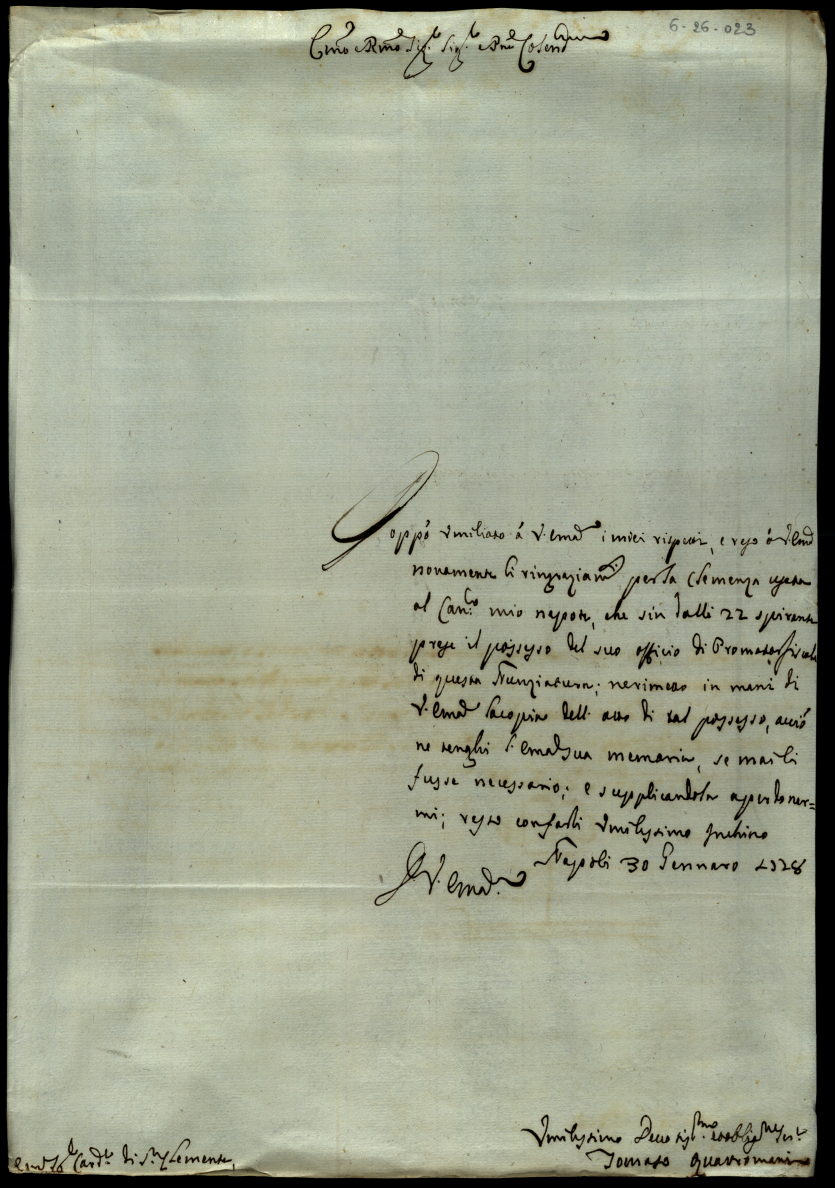 6-26-023
Em̃o e Rmo Sig.r Sig.r e Pne Colend
Doppò Vmiliato á V. Emã i miei rispetti, e reso á V. Emã
novamente li ringraziam.ti per la Clemenza usata
al Can.co mio nepote, che sin dalli 22 spirante
prese il possesso del suo officio di Promotor fiscale
di questa Nunziatura; ne rimetto in mani di
V. Emã la copia dell' atto di tal possesso, acciò
ne tenghi V. Emã sua memoria, se mai li
fusse necessario; e supplicandola a perdonar=
mi; resto con farli Vmilissimo Inchino
Napoli 30 Gennaro 1728
D V. Emã.
Vmilissimo Deuotiss.mo et obblig.mo Ser.re
Tomaso Quattromani
Card.le di S. Clemente